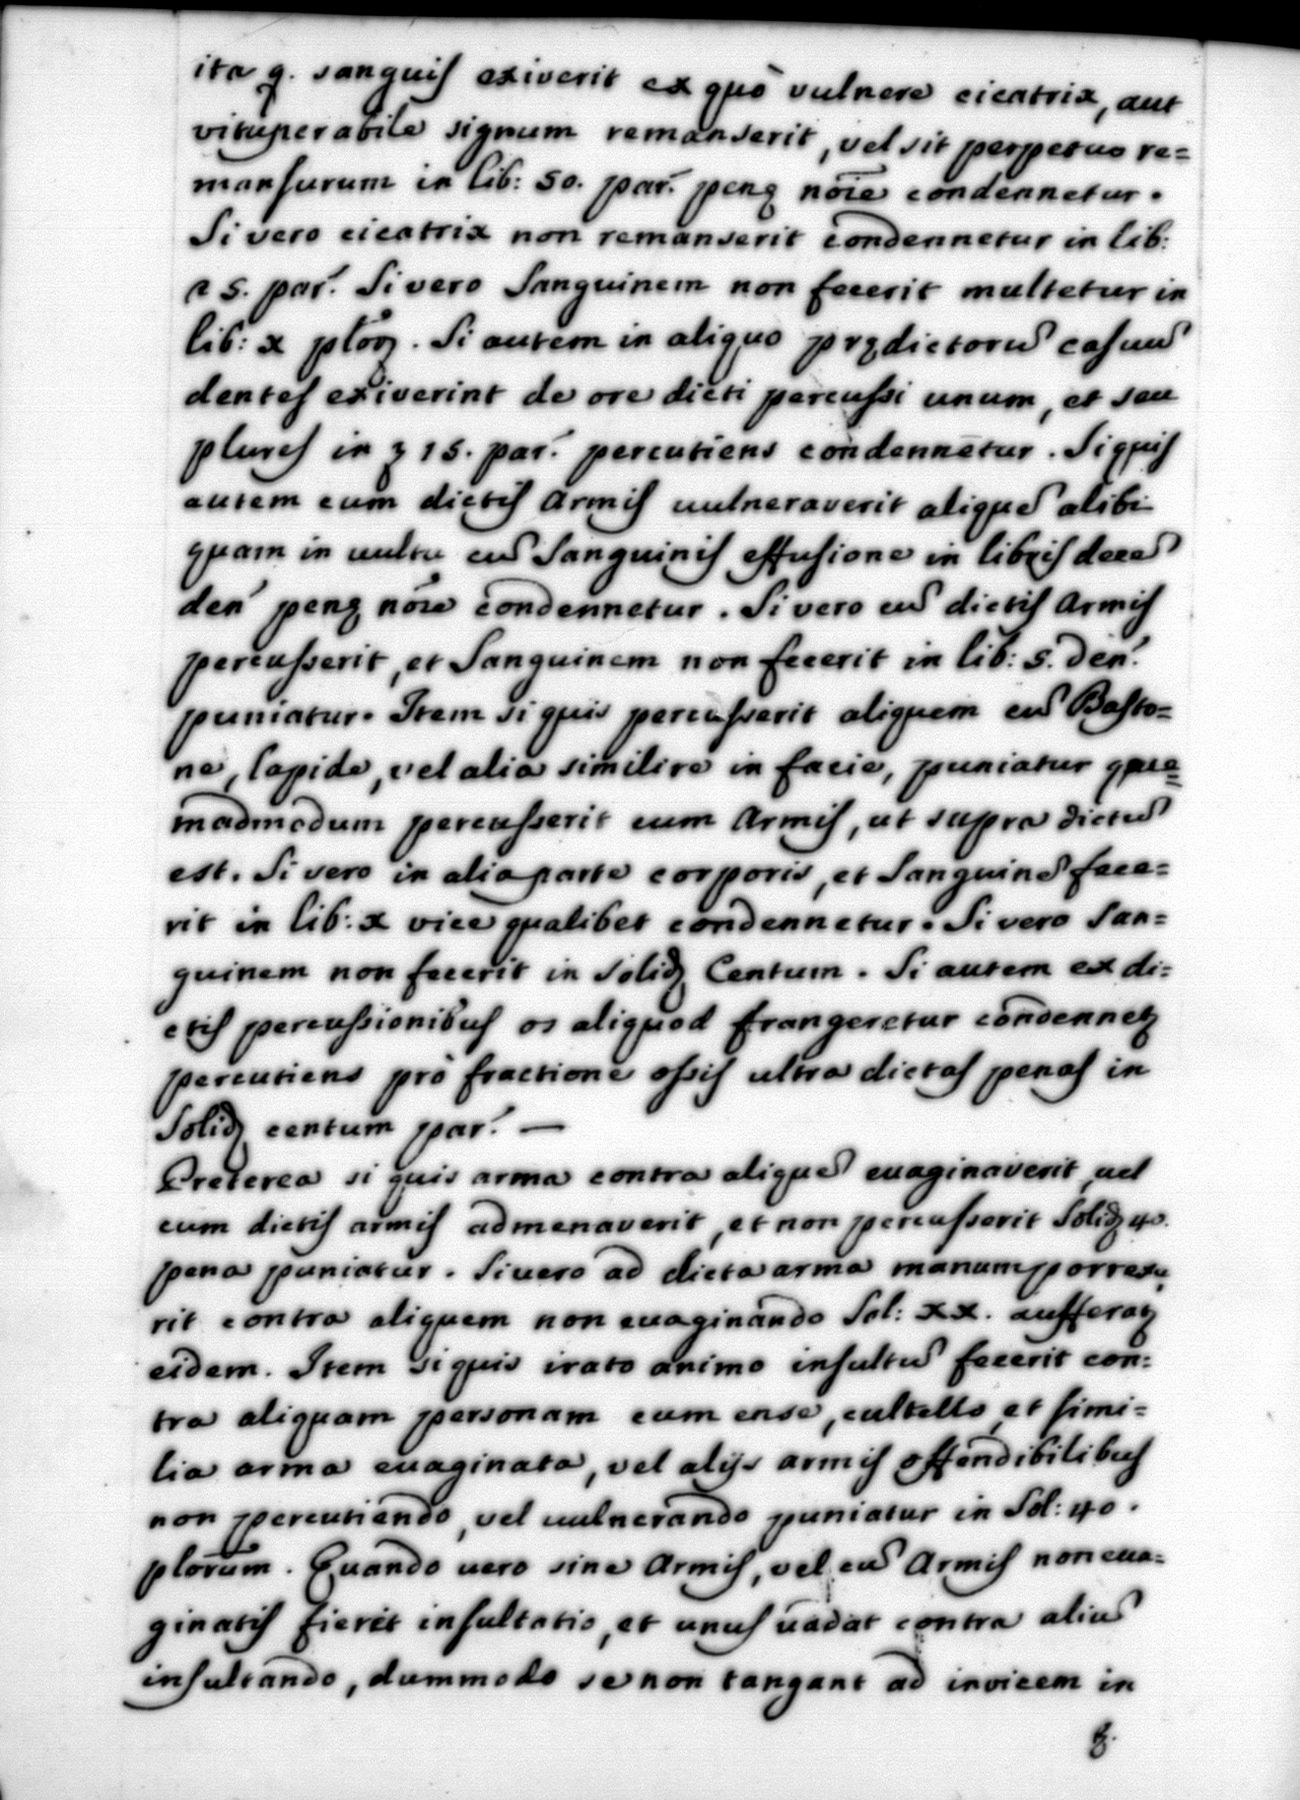 ita q. sanguis exiverit ex quò vulnere cicatrix, aut
vituperabile signum remanserit, vel sit perpetuo re=
mansurum in lib: 50. par. penę nōie condennetur.
Si vero cicatrix non remanserit condennetur in lib:
25. par. Si vero Sanguinem non fecerit multetur in
lib: x ploꝝ. Si autem in aliquo prędictorū casuū
dentes exiverint de ore dicti percussi unum, et seu
plures in ꝫ 15. par. percutiens condennetur. Si quis
autem cum dictis Armis uulneraverit aliquē alibi
quam in uultu cū Sanguinis effusione in libris decē
den penę nōie condennetur. Si vero cū dictis Armis
percusserit, et Sanguinem non fecerit in lib: 5. den.
puniatur. Item si quis percusserit aliquem cū Basto=
ne, lapide, vel alia simili re in facie, puniatur que=
madmodum percusserit cum Armis, ut supra dictū
est. Si vero in alia parte corporis, et Sanguinē fece=
rit in lib: x vice qualibet condennetur. Si vero San=
guinem non fecerit in Solidꝫ Centum. Si autem ex di=
ctis percussionibus os aliquod frangeretur condennetꝫ
percutiens prò fractione ossis ultra dictas penas in
Solidꝫ centum par. —
Preterea si quis arma contra aliquē euaginaverit, uel
cum dictis armis admenaverit, et non percusserit Solidꝫ 40.
pena puniatur. Si uero ad dicta arma manum porrexe,
rit contra aliquem non euaginando Sol: xx. aufferatꝫ
eidem. Item si quis irato animo insultū fecerit con=
tra aliquam personam cum ense, cultello, et simi=
lia arma euaginata, vel alijs armis offendibilibus
non percutiendo, vel uulnerando puniatur in Sol: 40.
plorum. Quando uero sine Armis, vel cū Armis non eua=
ginatis fieret insultatio, et unus uadat contra aliū
insultando, dummodo se non tangant ad invicem in
8.